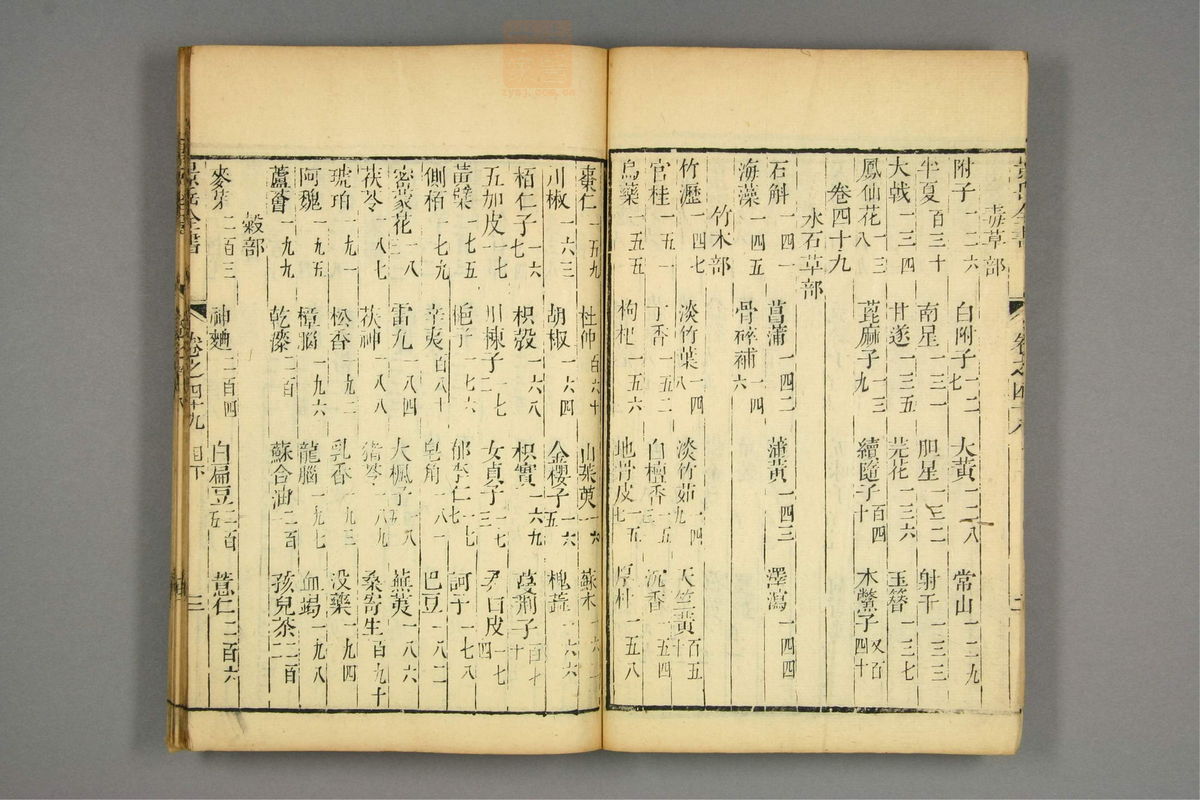 毒草部
附子一二六 白附子一二七 大黃一二八 常山一二九
半夏百三十 南星一三一 胆星一三二 射干一三三
大戟一三四 甘遂一三五 芫花一三六 玉簪一三七
鳳仙花一三八 蓖麻子一三九 續隨子百四十 木鱉子又百四十
卷四十九
水石草部
石斛一四一 菖蒲一四二 蒲黃一四三 澤瀉一四四
海藻一四五 骨碎補一四六
竹木部
竹瀝一四七 淡竹葉一四八 淡竹茹一四九 天竺黃百五十
官桂一五一 丁香一五二 白檀香一五三 沉香一五四
烏藥一五五 枸杞一五六 地骨皮一五七 厚朴一五八
棗仁一五九 杜仲百六十 山茱萸一六一 蘇木一六二
川椒一六三 胡椒一六四 金櫻子一六五 槐蕊一六六
栢仁子一六七 枳殼一六八 枳實一六九 蔓荊子百七十
五加皮一七一 川楝子一七二 女貞子一七三 皮一七四
黃蘗一七五 梔子一七六 郁李仁一七七 訶子一七八
側栢一七九 辛夷百八十 皂角一八一 巴豆一八二
密蒙花一八三 雷丸一八四 大楓子一八五 蕪荑一八六
茯苓一八七 茯神一八八 猪苓一八九 桑寄生百九十
琥珀一九一 松香一九二 乳香一九三 没藥一九四
阿魏一九五 樟腦一九六 龍腦一九七 血竭一九八
蘆薈一九九 乾漆二百 蘇合油二百 孩兒茶二百
穀部
麥芽二百三 神麯二百四 白扁豆二百五 薏仁二百六
全書 卷之四十九 目下 三